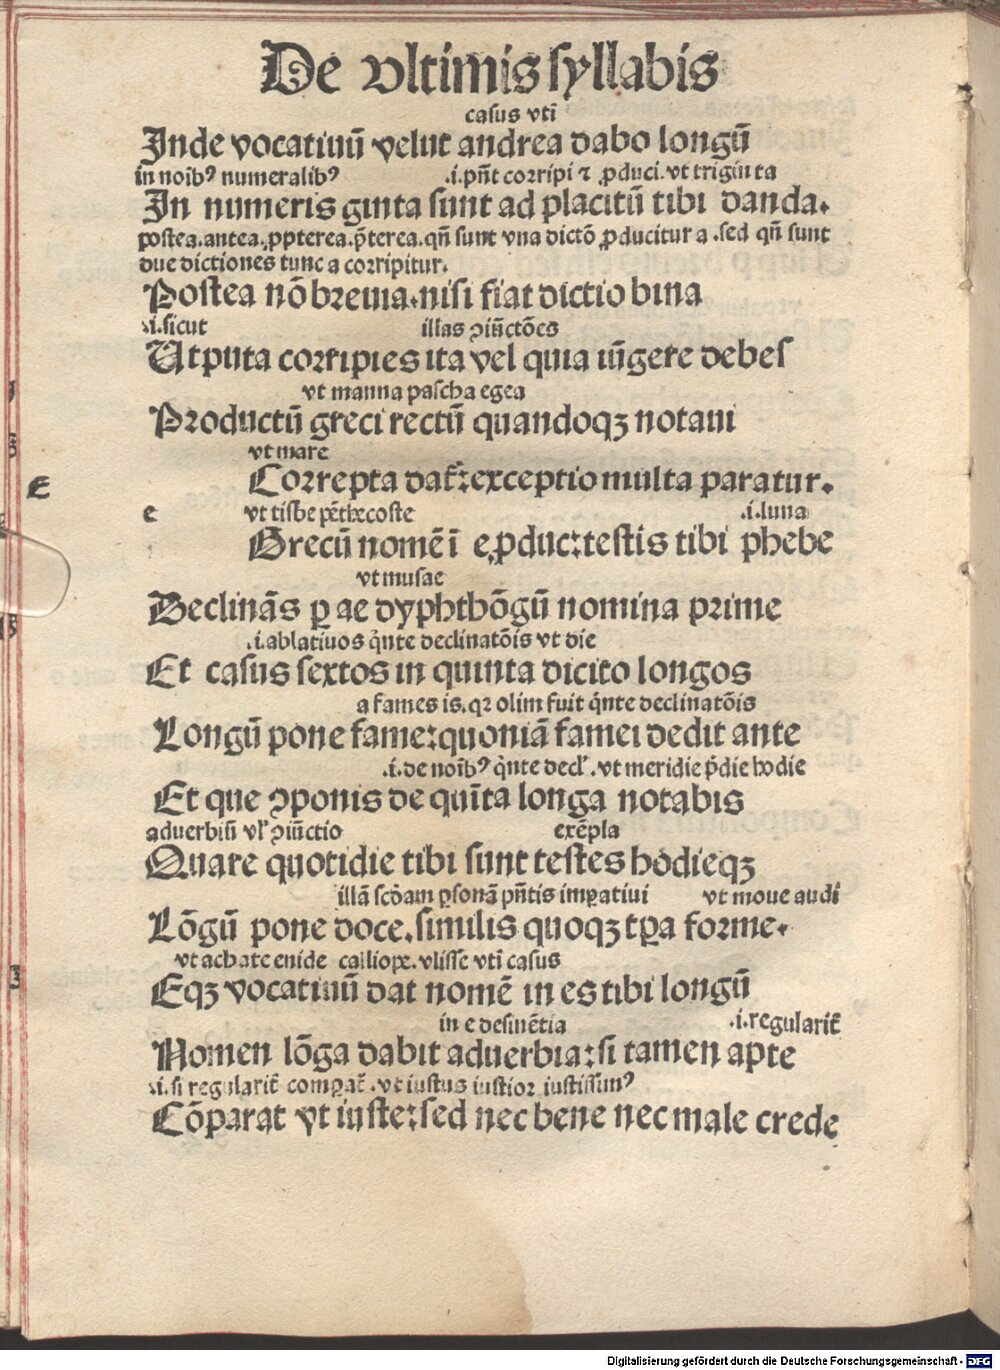 De vltimis syllabis
casus vti
Inde vocatiuū velut andrea dabo longū
in noibꝰ numeralibꝰ .i. pn̄t corripi ⁊ ꝓduci. vt triginta
In numeris ginta sunt ad placitū tibi danda.
postea. antea. ꝓpterea. p̄terea. qn̄ sunt vna dictō ꝓducitur a .sed qn̄ sunt
due dictiones tunc a corripitur.
Postea nō breuia. nisi fiat dictio bina
.i. sicut illas ꝯiūctōes
Ut puta corripies ita vel quia iūgere debes
vt manna pascha egea
Productū greci rectū quandoqꝫ notaui
vt mare
Correpta dat᷑: exceptio multa paratur.
E
e vt tisbe pēthecoste .i. luna
Grecū nomē ī e ꝓduc: testis tibi phebe
vt musae
Declinās ꝑ ae dyphthōgū nomina prime
.i. ablatiuos q̇nte declinatōis vt die
Et casus sextos in quinta dicito longos
a fames is. qꝛ olim fuit q̇nte declinatōis
Longū pone fame: quoniā famei dedit ante
.i. de noībꝰ q̇nte decl᷑. vt meridie p̄die hodie
Et que ꝯponis de quīta longa notabis
aduerbiū vl᷑ ꝯiūctio exēpla
Quare quotidie tibi sunt testes hodieqꝫ
illā scḋam ꝑsonā pn̄tis imꝑatiui vt moue audi
Lōgū pone doce. similis quoqꝫ tꝑa forme.
vt achate enide calliope. vlisse vti casus
Eqꝫ vocatiuū dat nomē in es tibi longū
in e desinētia .i. regularit᷑
Nomen lōga dabit aduerbia: si tamen apte
.i. si regularit᷑ comꝑat᷑. vt iustus iustior iustissimꝰ
Cōparat vt iuste: sed nec bene nec male crede
Digitalisierung gefördert durch die Deutsche Forschungsgemeinschaft - DFG